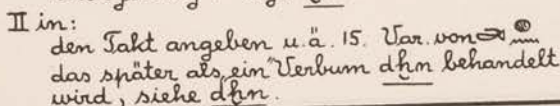 II in:
den Takt angeben u. ä. 15. Var. von
das später als „ein Verbum dhn behandelt
wird, siehe dhn.